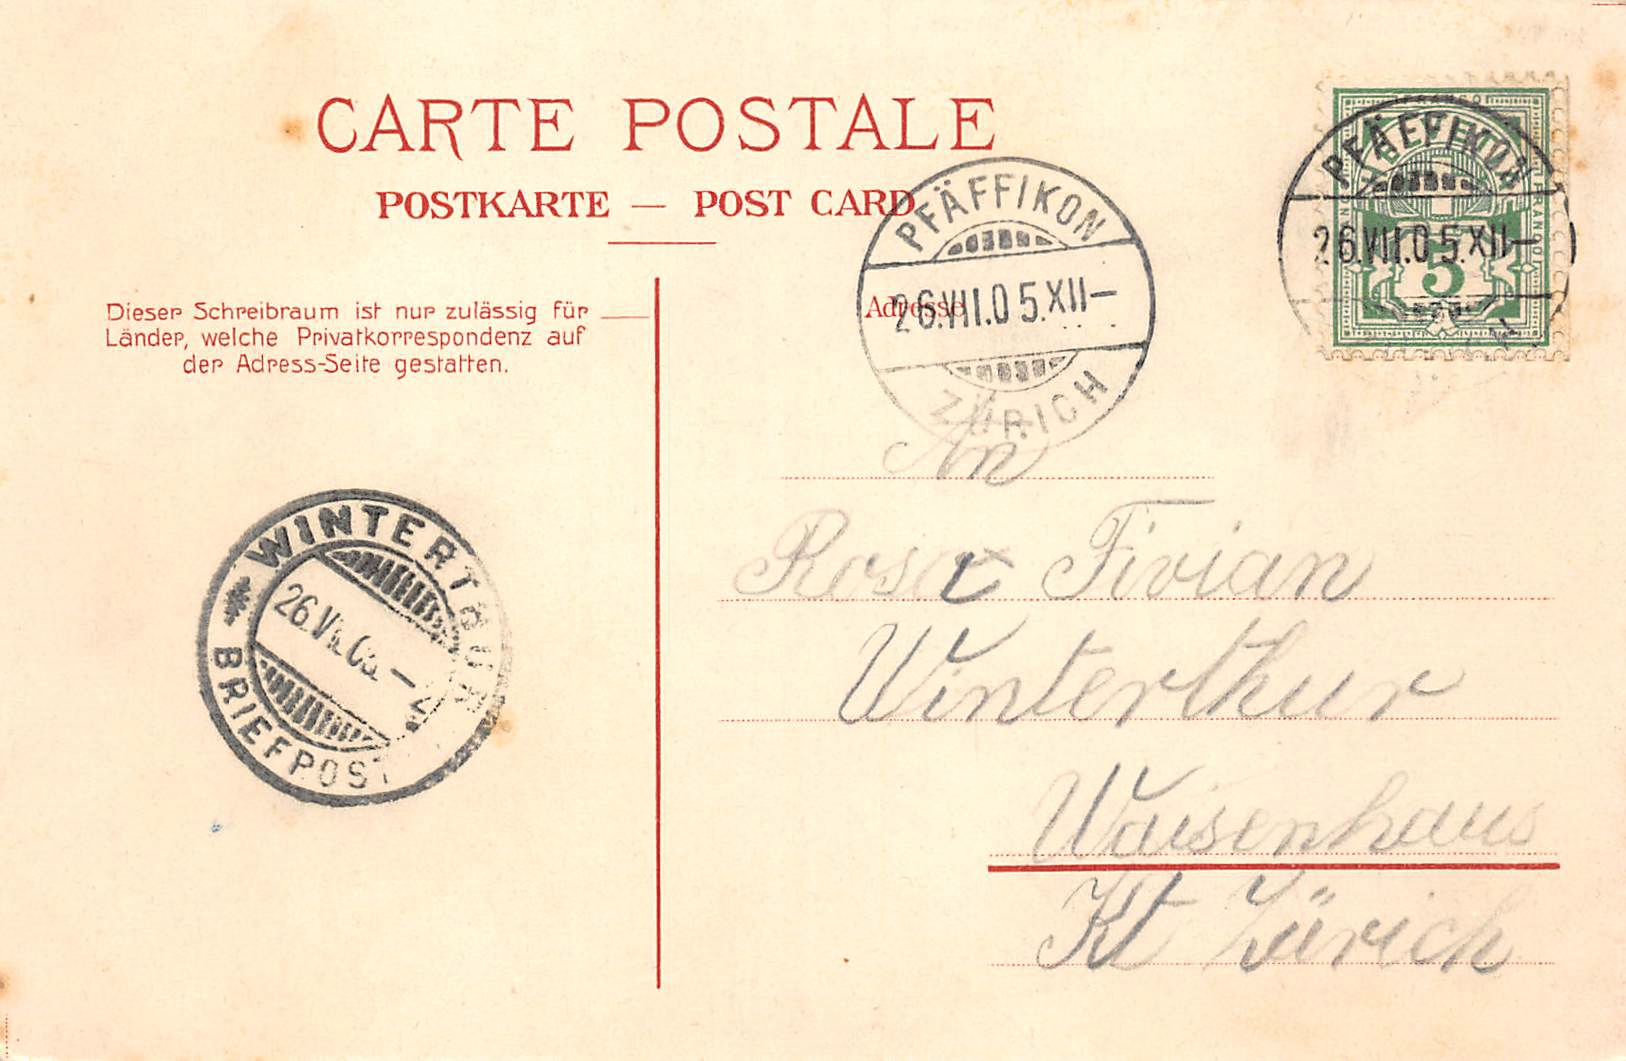 CARTE POSTALE
POSTKARTE — POST CARD
Dieser Schreibraum ist nur zulässig für
Länder, welche Privatkorrespondenz auf
der Adress-Seite gestatten.
Adresse
PFÄFFIKON
26.VII.05.XII—
ZÜRICH
PFÄFFIKON
26.VII.05.XII—
FRANCO
5
WINTERTHUR
26.VII.05.—
BRIEFPOST
An
Rosa Fivian
Winterthur
Waisenhaus
Kt Zürich